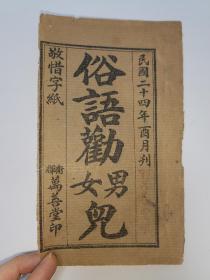 民國二十四年酉月刋
俗語勸男女兒
敬惜字紙
萬善堂印